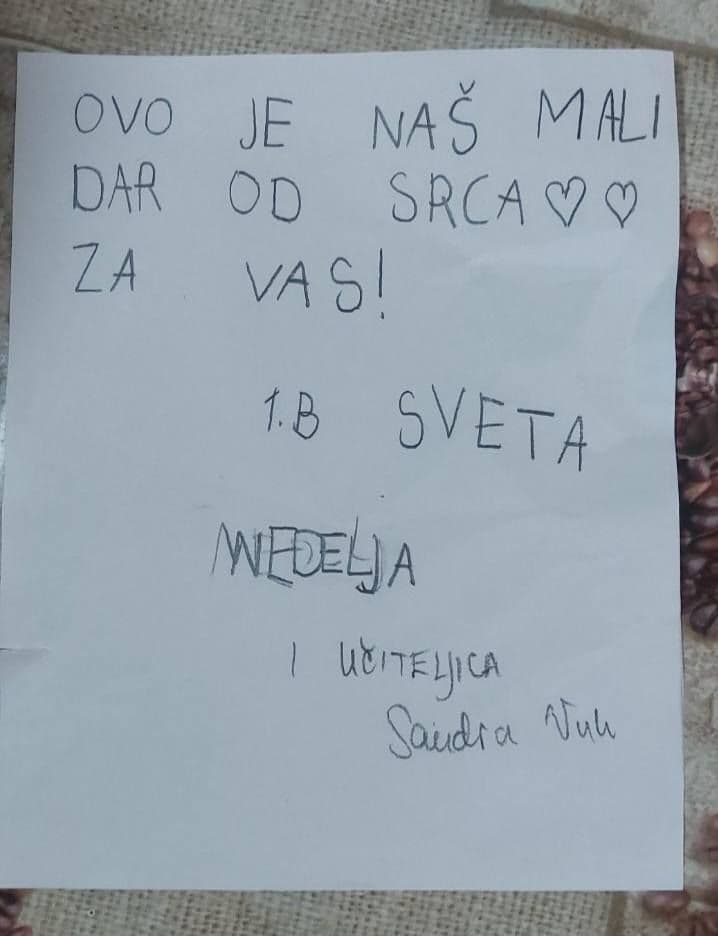 OVO JE NAŠ MALI
DAR OD SRCA♡♡
ZA VAS!
1.B SVETA
NEDELJA
I UČITELJICA
Sandra Vuk